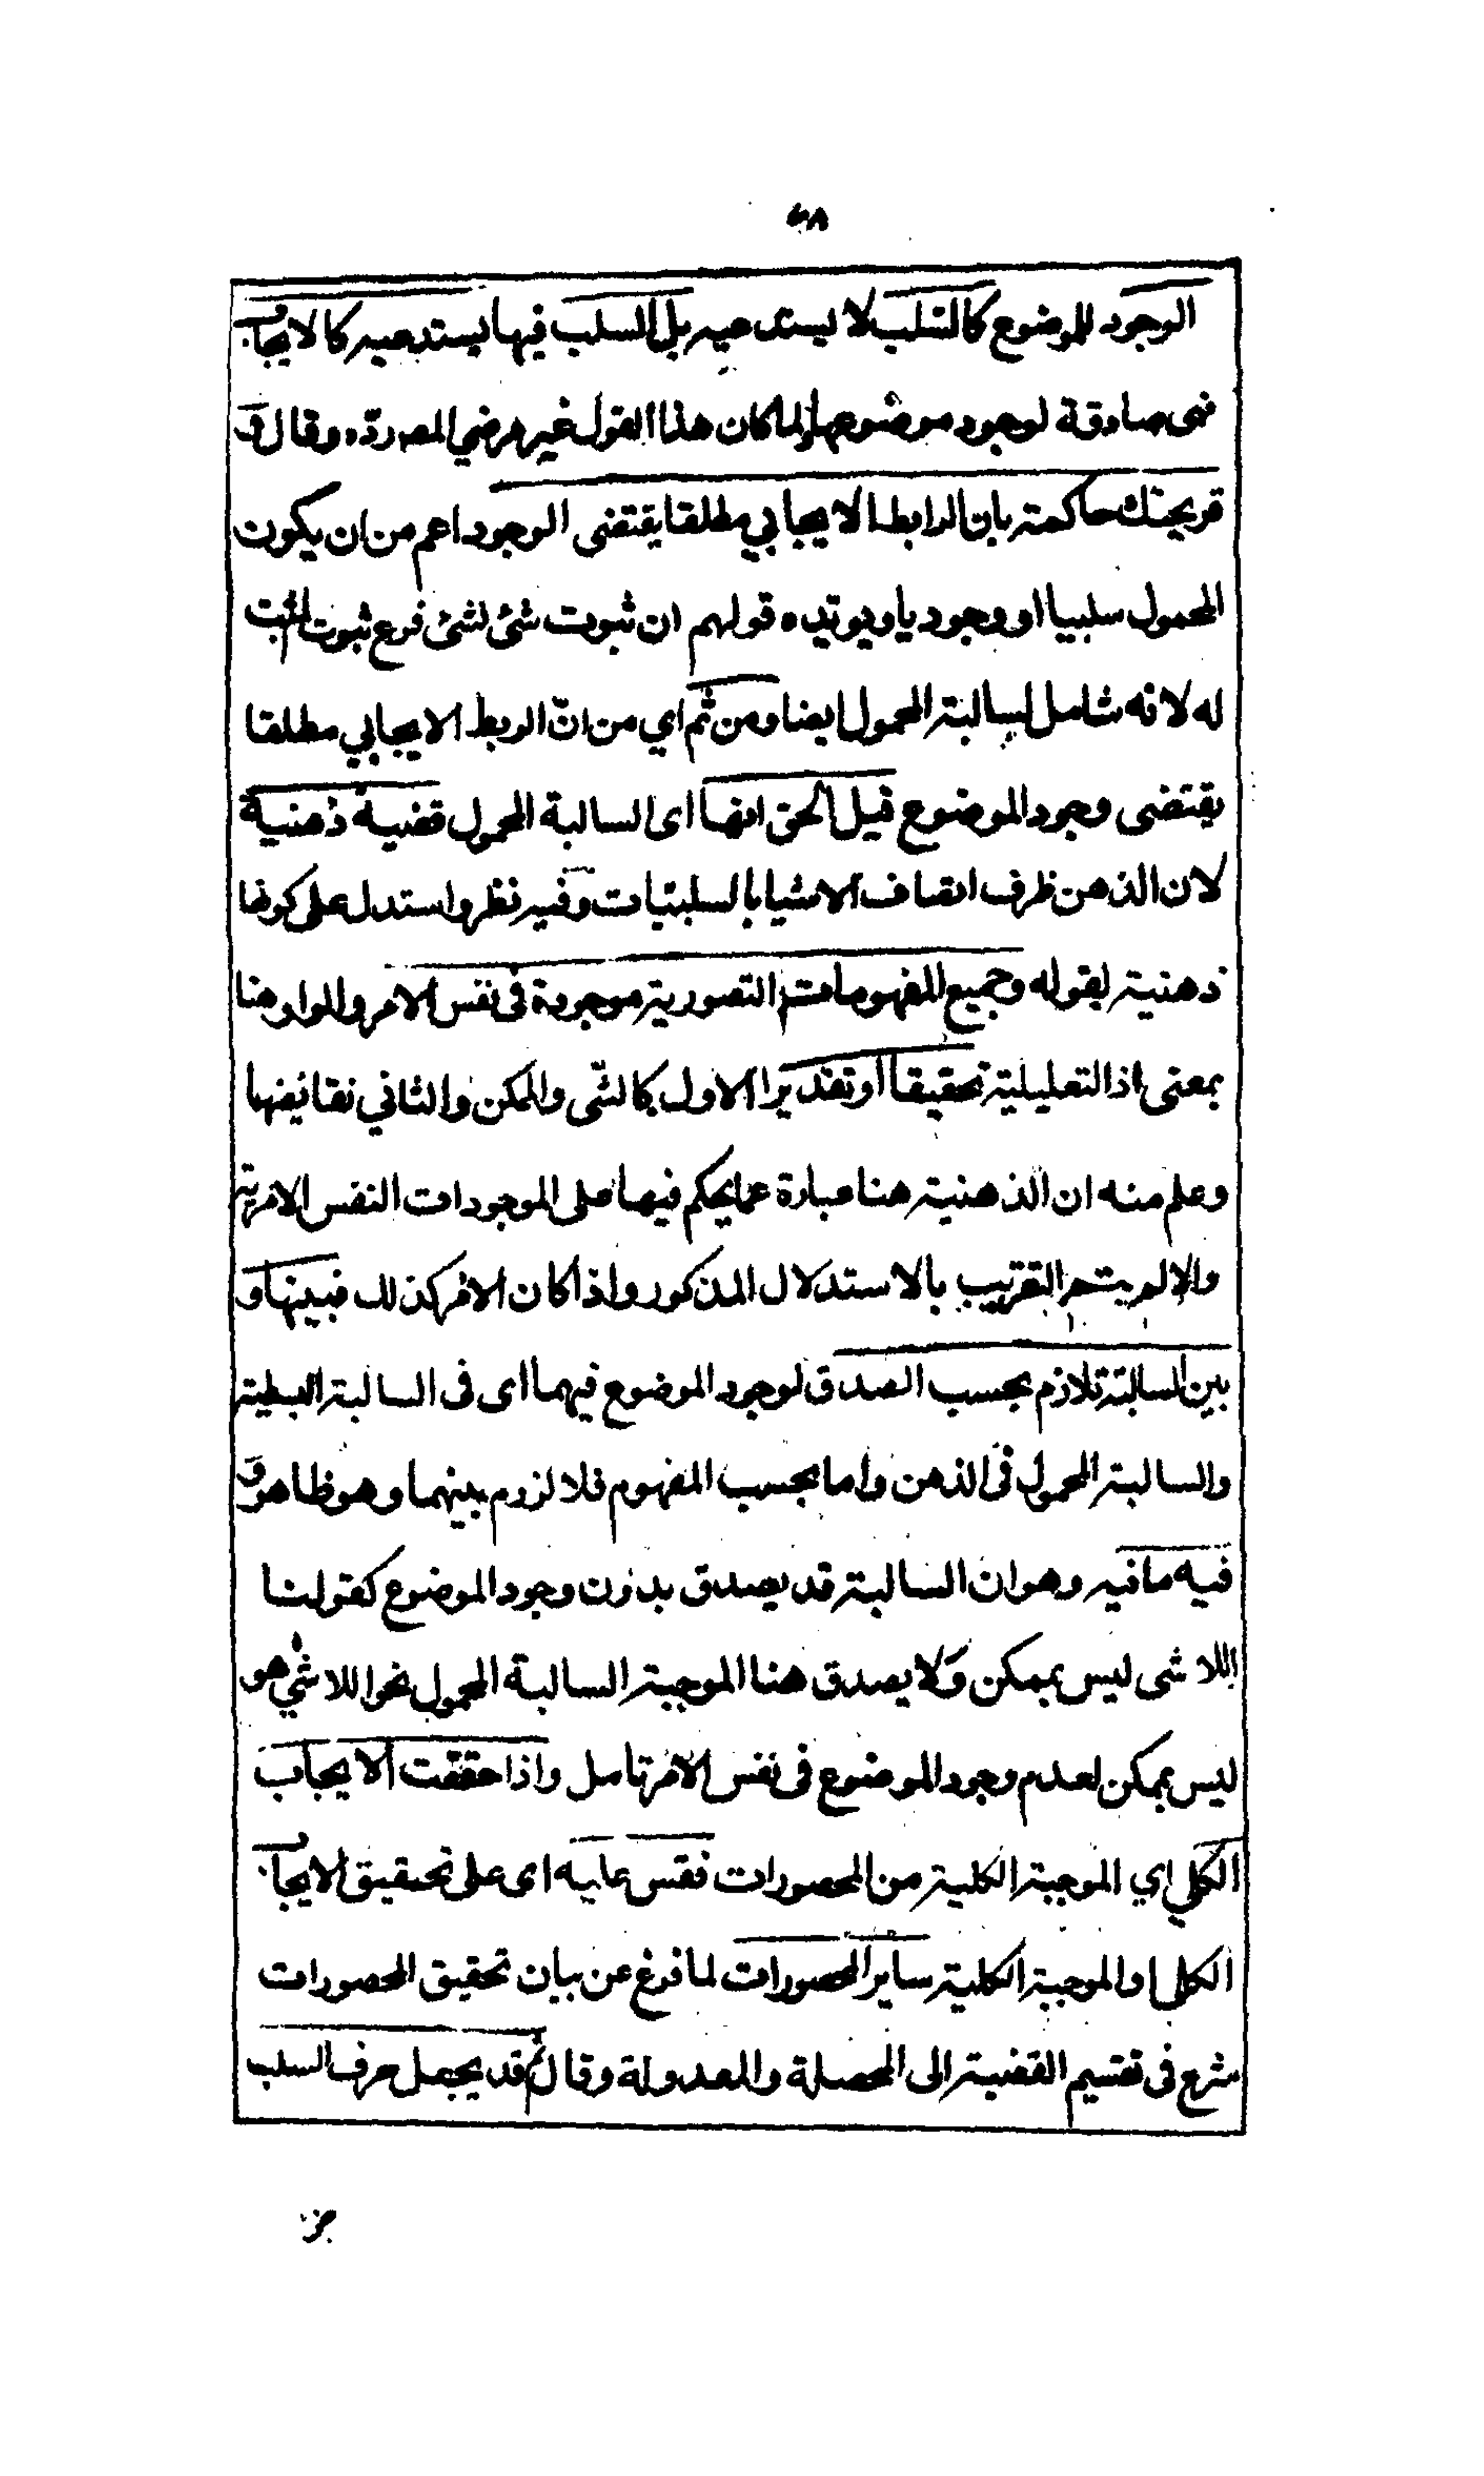 ٤٨
الوجود للموضوع كالسلب لا يستدعيه بل السلب فيها يستدعيه كالايجاب
فهى صادقة لوجود موضوعها ولما كان هذا القول غير مرضي المصه ردّه وقال و
قريحتك حاكمة بان الرابط الايجابي مطلقا يقتضى الوجود اعم من ان يكون
المحمول سلبيا او وجوديا ويويده قولهم ان ثبوت شئ لشئ فرع ثبوت المثبت
له لانه شامل لسالبة المحمول ايضا ومن ثم اي من انّ الربط الايجابي مطلقا
يقتضى وجود الموضوع قيل الحق انها اى السالبة المحمول قضية ذهنية
لان الذهن ظرف اتصاف الاشيا بالسلبيات وفيه نظر واستدل على كونها
ذهنية بقوله وجميع المفهومات التصورية موجودة فى نفس الامر والواو هنا
بمعنى اذ التعليلية تحقيقا او تقديرا الاول كالشى والممكن والثاني نقائضها
وعلم منه ان الذهنية هنا عبارة عما يحكم فيها على الموجودات النفس الامرية
والا لم يتم التقريب بالاستدلال المذكور واذا كان الامر كذلك فبينها و
بين السالبة تلازم بحسب الصدق لوجود الموضوع فيهما اى فى السالبة البسيطة
والسالبة المحمول فى الذهن واما بحسب المفهوم فلا لزوم بينهما وهو ظاهر و
فيه ما فيه وهو ان السالبة قد يصدق بدون وجود الموضوع كقولنا
اللاشى ليس بممكن ولا يصدق هنا الموجبة السالبة المحمول نحو اللاشي هو
ليس بممكن لعدم وجود الموضوع فى نفس الامر تامل واذا حققت الايجاب
الكلي اي الموجبة الكلية من المحصورات فقس عليه اى على تحقيق الايجاب
الكلى او الموجبة الكلية ساير المحصورات لما فرغ عن بيان تحقيق المحصورات
شرع فى تقسيم القضية الى المحصلة والمعدولة وقال ثم قد يجعل حرف السلب